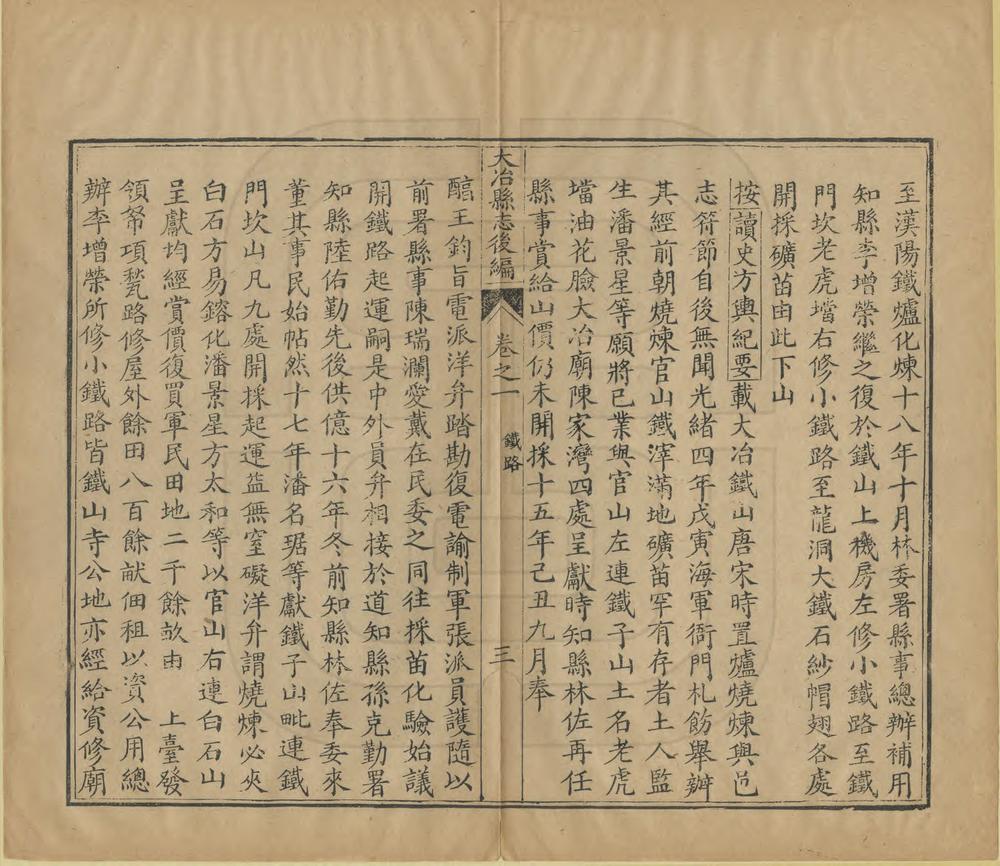 至漢陽鐵爐化煉十八年十月林委署縣事總辦補用
知縣李增榮繼之復於鐵山上機房左修小鐵路至鐵
門坎老虎壋右修小鐵路至龍洞大鐵石紗帽翅各處
開採礦苗由此下山
按讀史方輿紀要載大冶鐵山唐宋時置爐燒煉與邑
志符節自後無聞光緒四年戊寅海軍衙門札飭舉辦
其經前朝燒煉官山鐵滓滿地礦苗罕有存者土人監
生潘景星等願將己業與官山左連鐵子山土名老虎
壋油花臉大冶廟陳家灣四處呈獻時知縣林佐再任
縣事賞給山價仍未開採十五年己丑九月奉
大冶縣志後編
卷之一
鐵路
三
醕王鈞旨電派洋弁踏勘復電諭制軍張派員護隨以
前署縣事陳瑞瀾愛戴在民委之同往採苗化驗始議
開鐵路起運嗣是中外員弁相接於道知縣孫克勤署
知縣陸佑勤先後供億十六年冬前知縣林佐奉委來
董其事民始帖然十七年潘名琚等獻鐵子山毗連鐵
門坎山凡九處開採起運益無窒礙洋弁謂燒煉必夾
白石方易鎔化潘景星方太和等以官山右連白石山
呈獻均經賞價復買軍民田地二千餘畝由 上臺發
領帑項甃路修屋外餘田八百餘畝佃租以資公用總
辦李增榮所修小鐵路皆鐵山寺公地亦經給資修廟